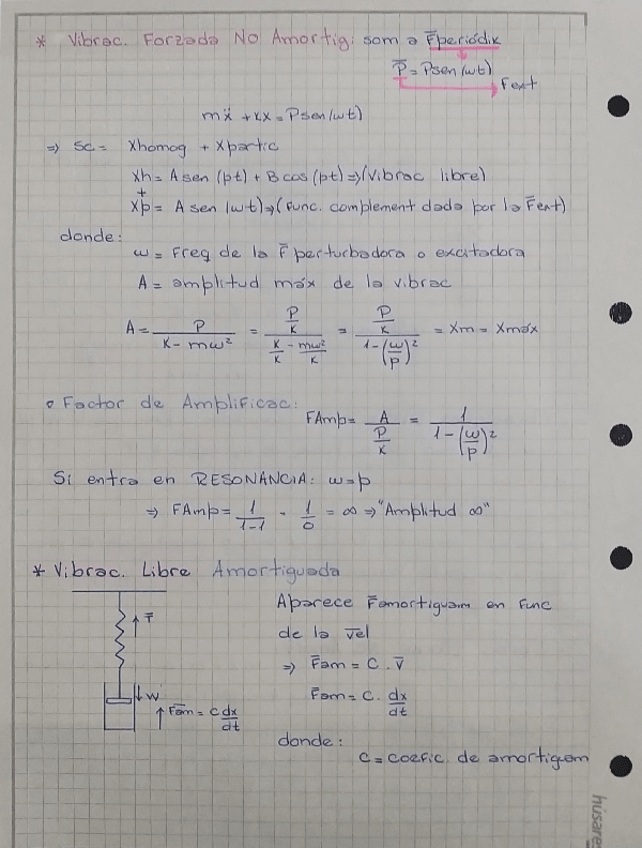 * Vibrac. Forzada No Amortig: som a F̄periódik
P̄ = Psen(wt)
Fext
mẍ + kx = Psen(wt)
⇒ Sc = Xhomog + Xpartic
Xh = A sen (pt) + B cos (pt) ⇒ (Vibrac libre)
+
Xp = A sen (wt) ⇒ (Func. complement dada por la F̄ext)
donde:
ω = Freq de la F̄ perturbadora o excitadora
A = amplitud máx de la vibrac
A = P / (K - mω²) = (P/K) / (K/K - mω²/K) = (P/K) / (1 - (ω/p)²) = Xm = Xmáx
o Factor de Amplificac:
FAmp = A / (P/K) = 1 / (1 - (ω/p)²)
Si entra en RESONANCIA: ω = p
⇒ FAmp = 1/(1-1) = 1/0 = ∞ ⇒ "Amplitud ∞"
* Vibrac. Libre Amortiguada
Aparece F̄amortiguam en func
de la v̄el
⇒ F̄am = C . V̄
F̄am = C . dx/dt
donde:
C = coefic. de amortiguam
↑ T̄
↓ W
↑ F̄am = c dx/dt
húsares